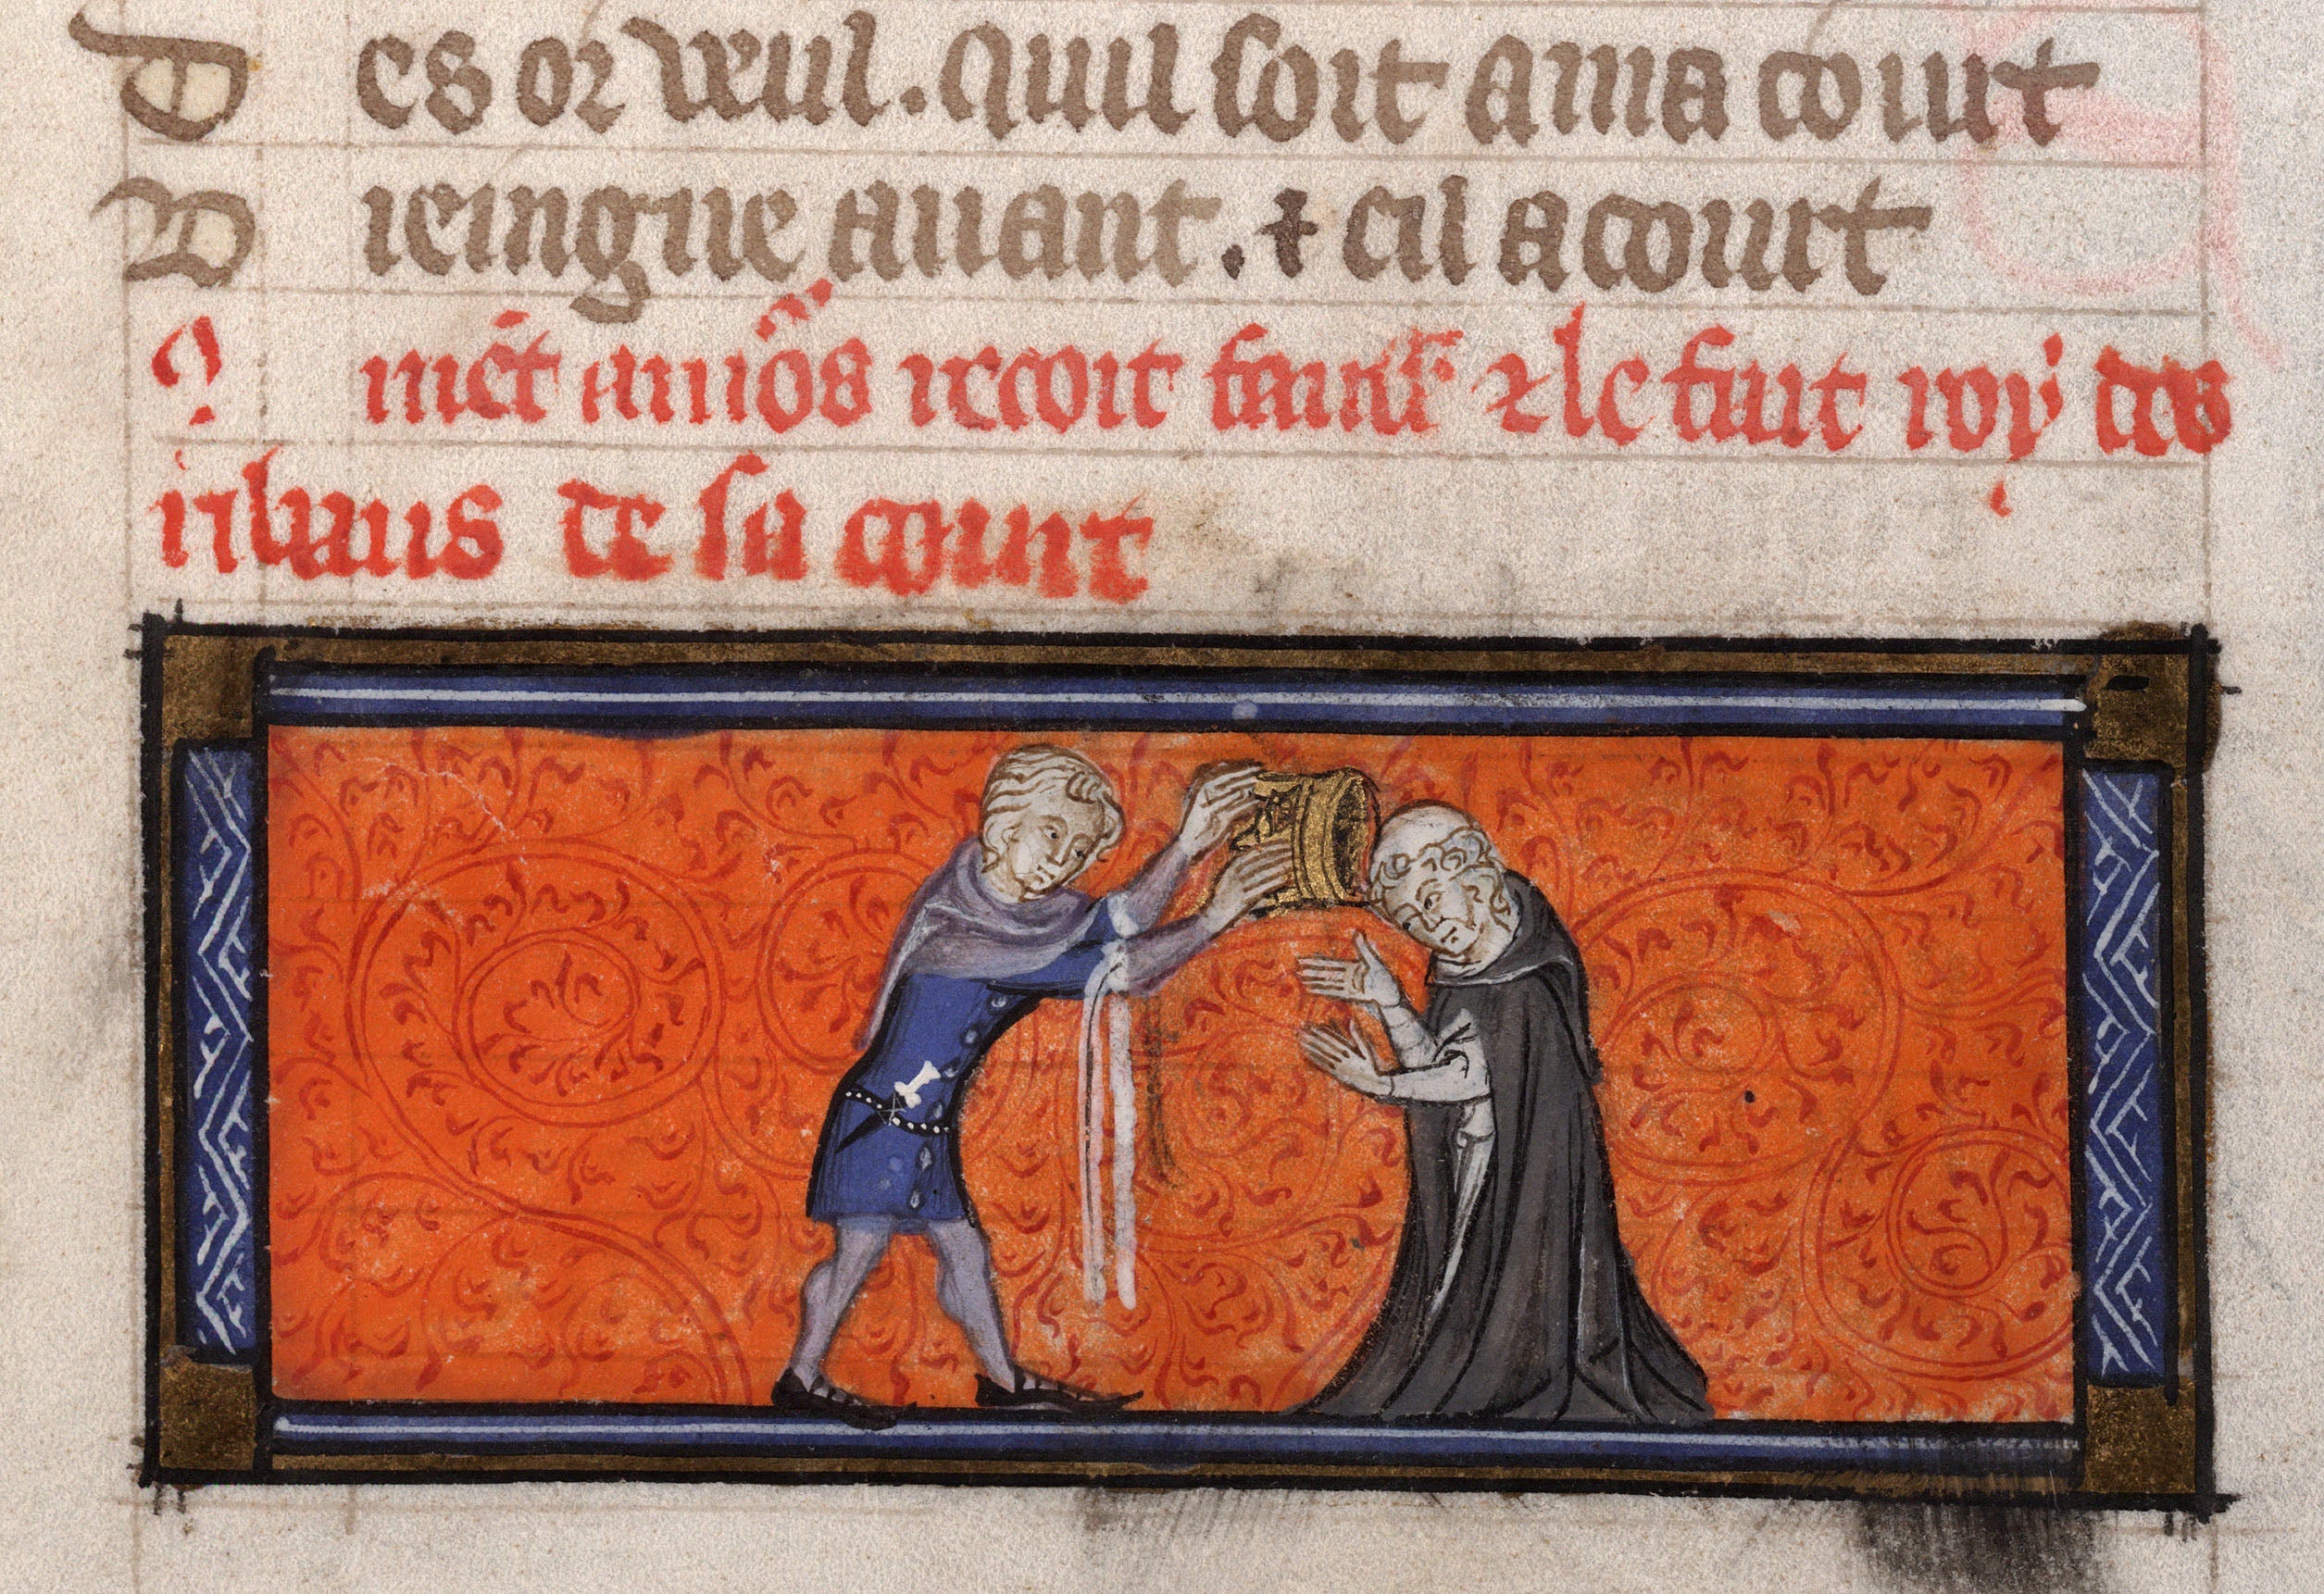 Des or veul. quil soit a ma court
Vieingne auant. ⁊ cil acourt
9mēt amo᷑s recoit faus ⁊ le fait roy des
ribaus de sa court